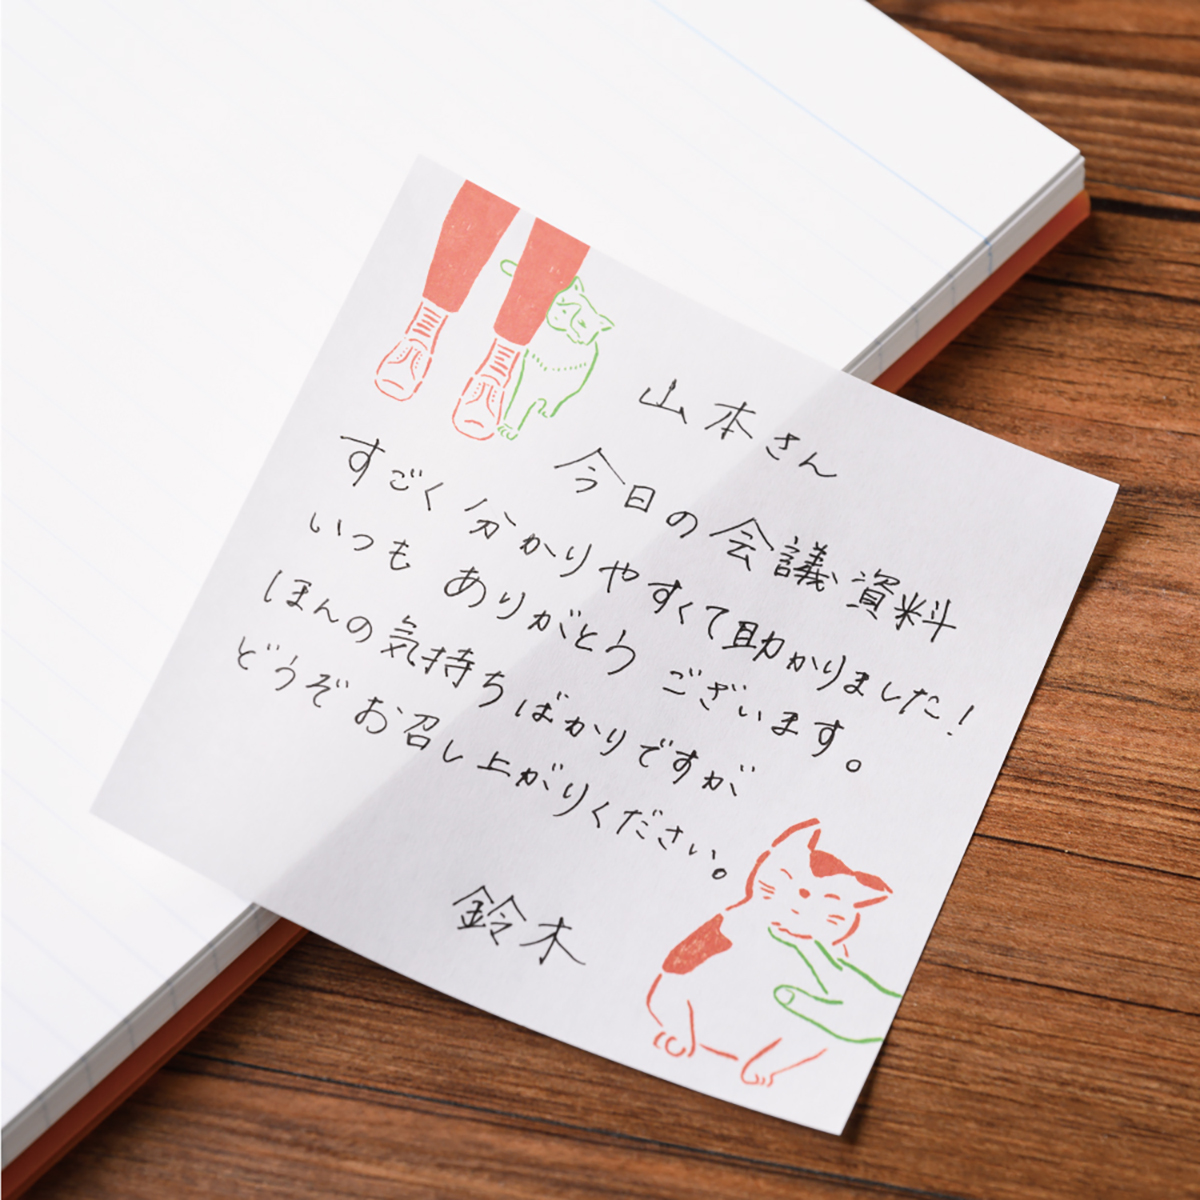 山本さん
今日の会議資料
すごく分かりやすくて助かりました!
いつもありがとうございます。
ほんの気持ちばかりですが
どうぞお召し上がりください。
鈴木